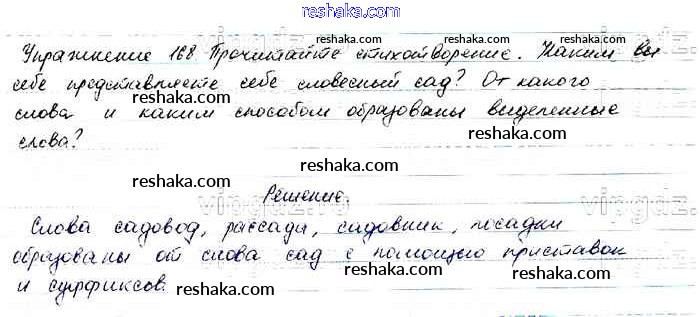 reshaka.com
Упражнение 168 Прочитайте стихотворение. Каким вы
reshaka.com reshaka.com
себе представляете себе словесный сад? От какого
reshaka.com
слова и каким способом образованы выделенные
reshaka.com
слова?
reshaka.com
vipgdz.ru Решение. vipgdz
reshaka.com
Слова садовод, рассады, садовник, посадки
reshaka.com
образованы от слова сад с помощью приставок
reshaka.com
и суффиксов.
reshaka.com reshaka.com